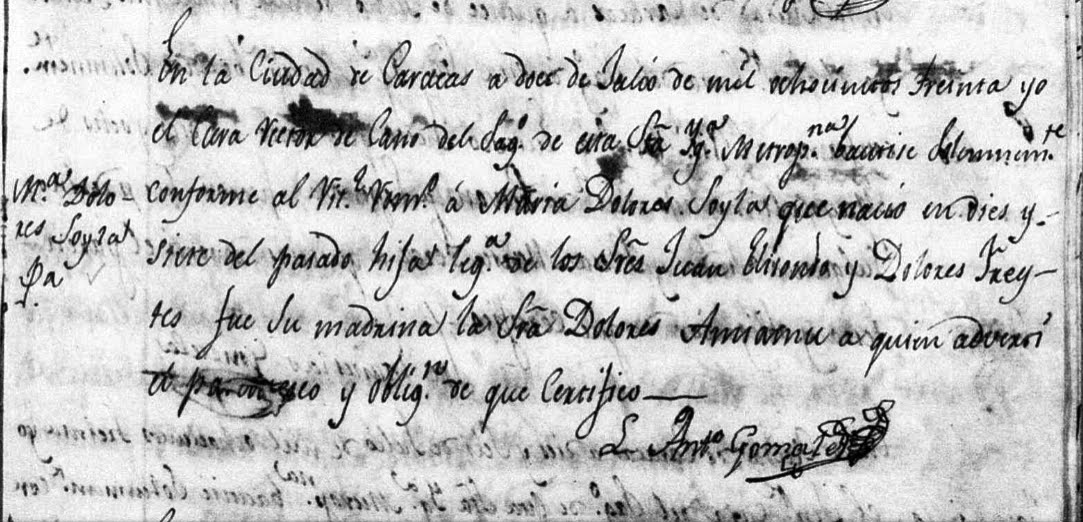 En la Ciudad de Caracas a doce de Julio de mil ochocientos treinta yo
el Cura Rector de Cano del Sag.º de esta Sta Yg.ª Metrop.na bautise Solemnem.te
M.a Dolo- conforme al Rit.l Rom.º á Maria Dolores Soyla que nació en dies y-
res Soyla siete del pasado hija leg.a de los Sres Juan Elisondo y Dolores Frey-
Pa
tes fue su madrina la Sra Dolores a quien adverti
el parentesco y oblig.nes de que Certifico
Ant.º Gomales